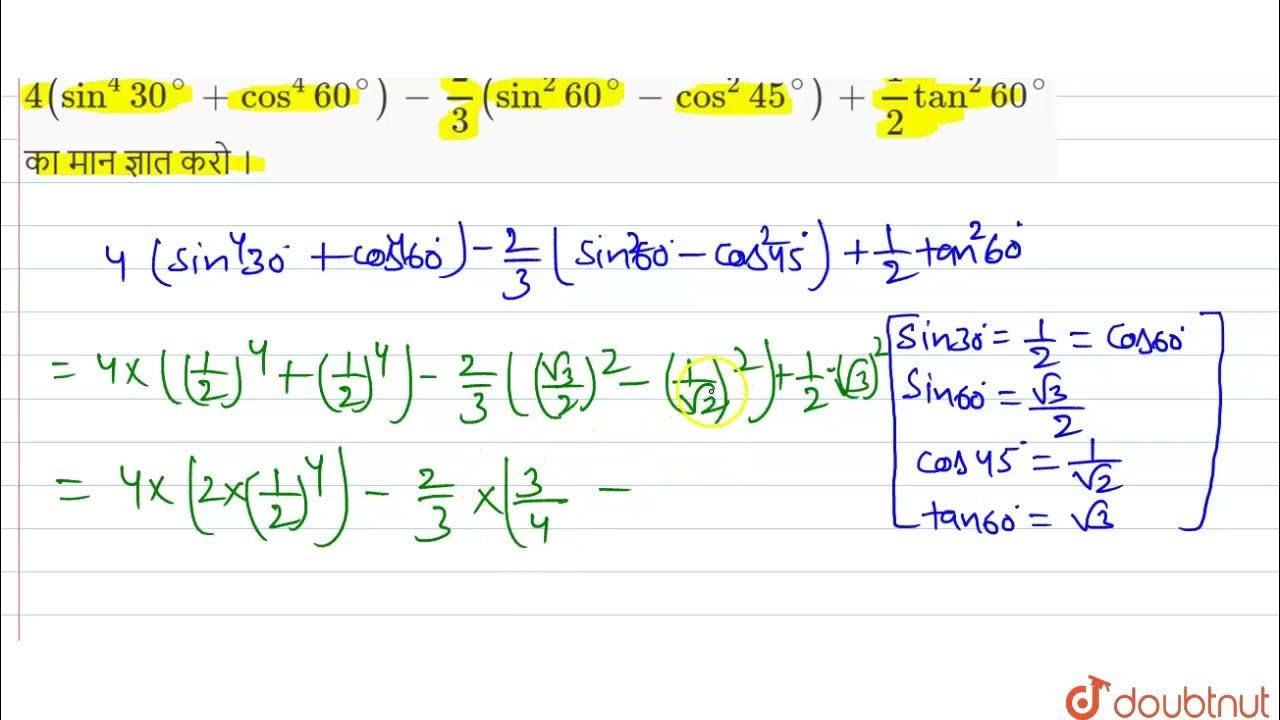 4(sin⁴ 30° + cos⁴ 60°) − 2/3 (sin² 60° − cos² 45°) + 1/2 tan² 60°
का मान ज्ञात करो ।
4 (sin⁴30° + cos⁴60°) − 2/3 (sin²60° − cos²45°) + 1/2 tan²60°
= 4 × ((1/2)⁴ + (1/2)⁴) − 2/3 ((√3/2)² − (1/√2)²) + 1/2 · (√3)²
= 4 × (2 × (1/2)⁴) − 2/3 × (3/4 −
[sin30° = 1/2 = cos60°
sin60° = √3/2
cos45° = 1/√2
tan60° = √3]
doubtnut